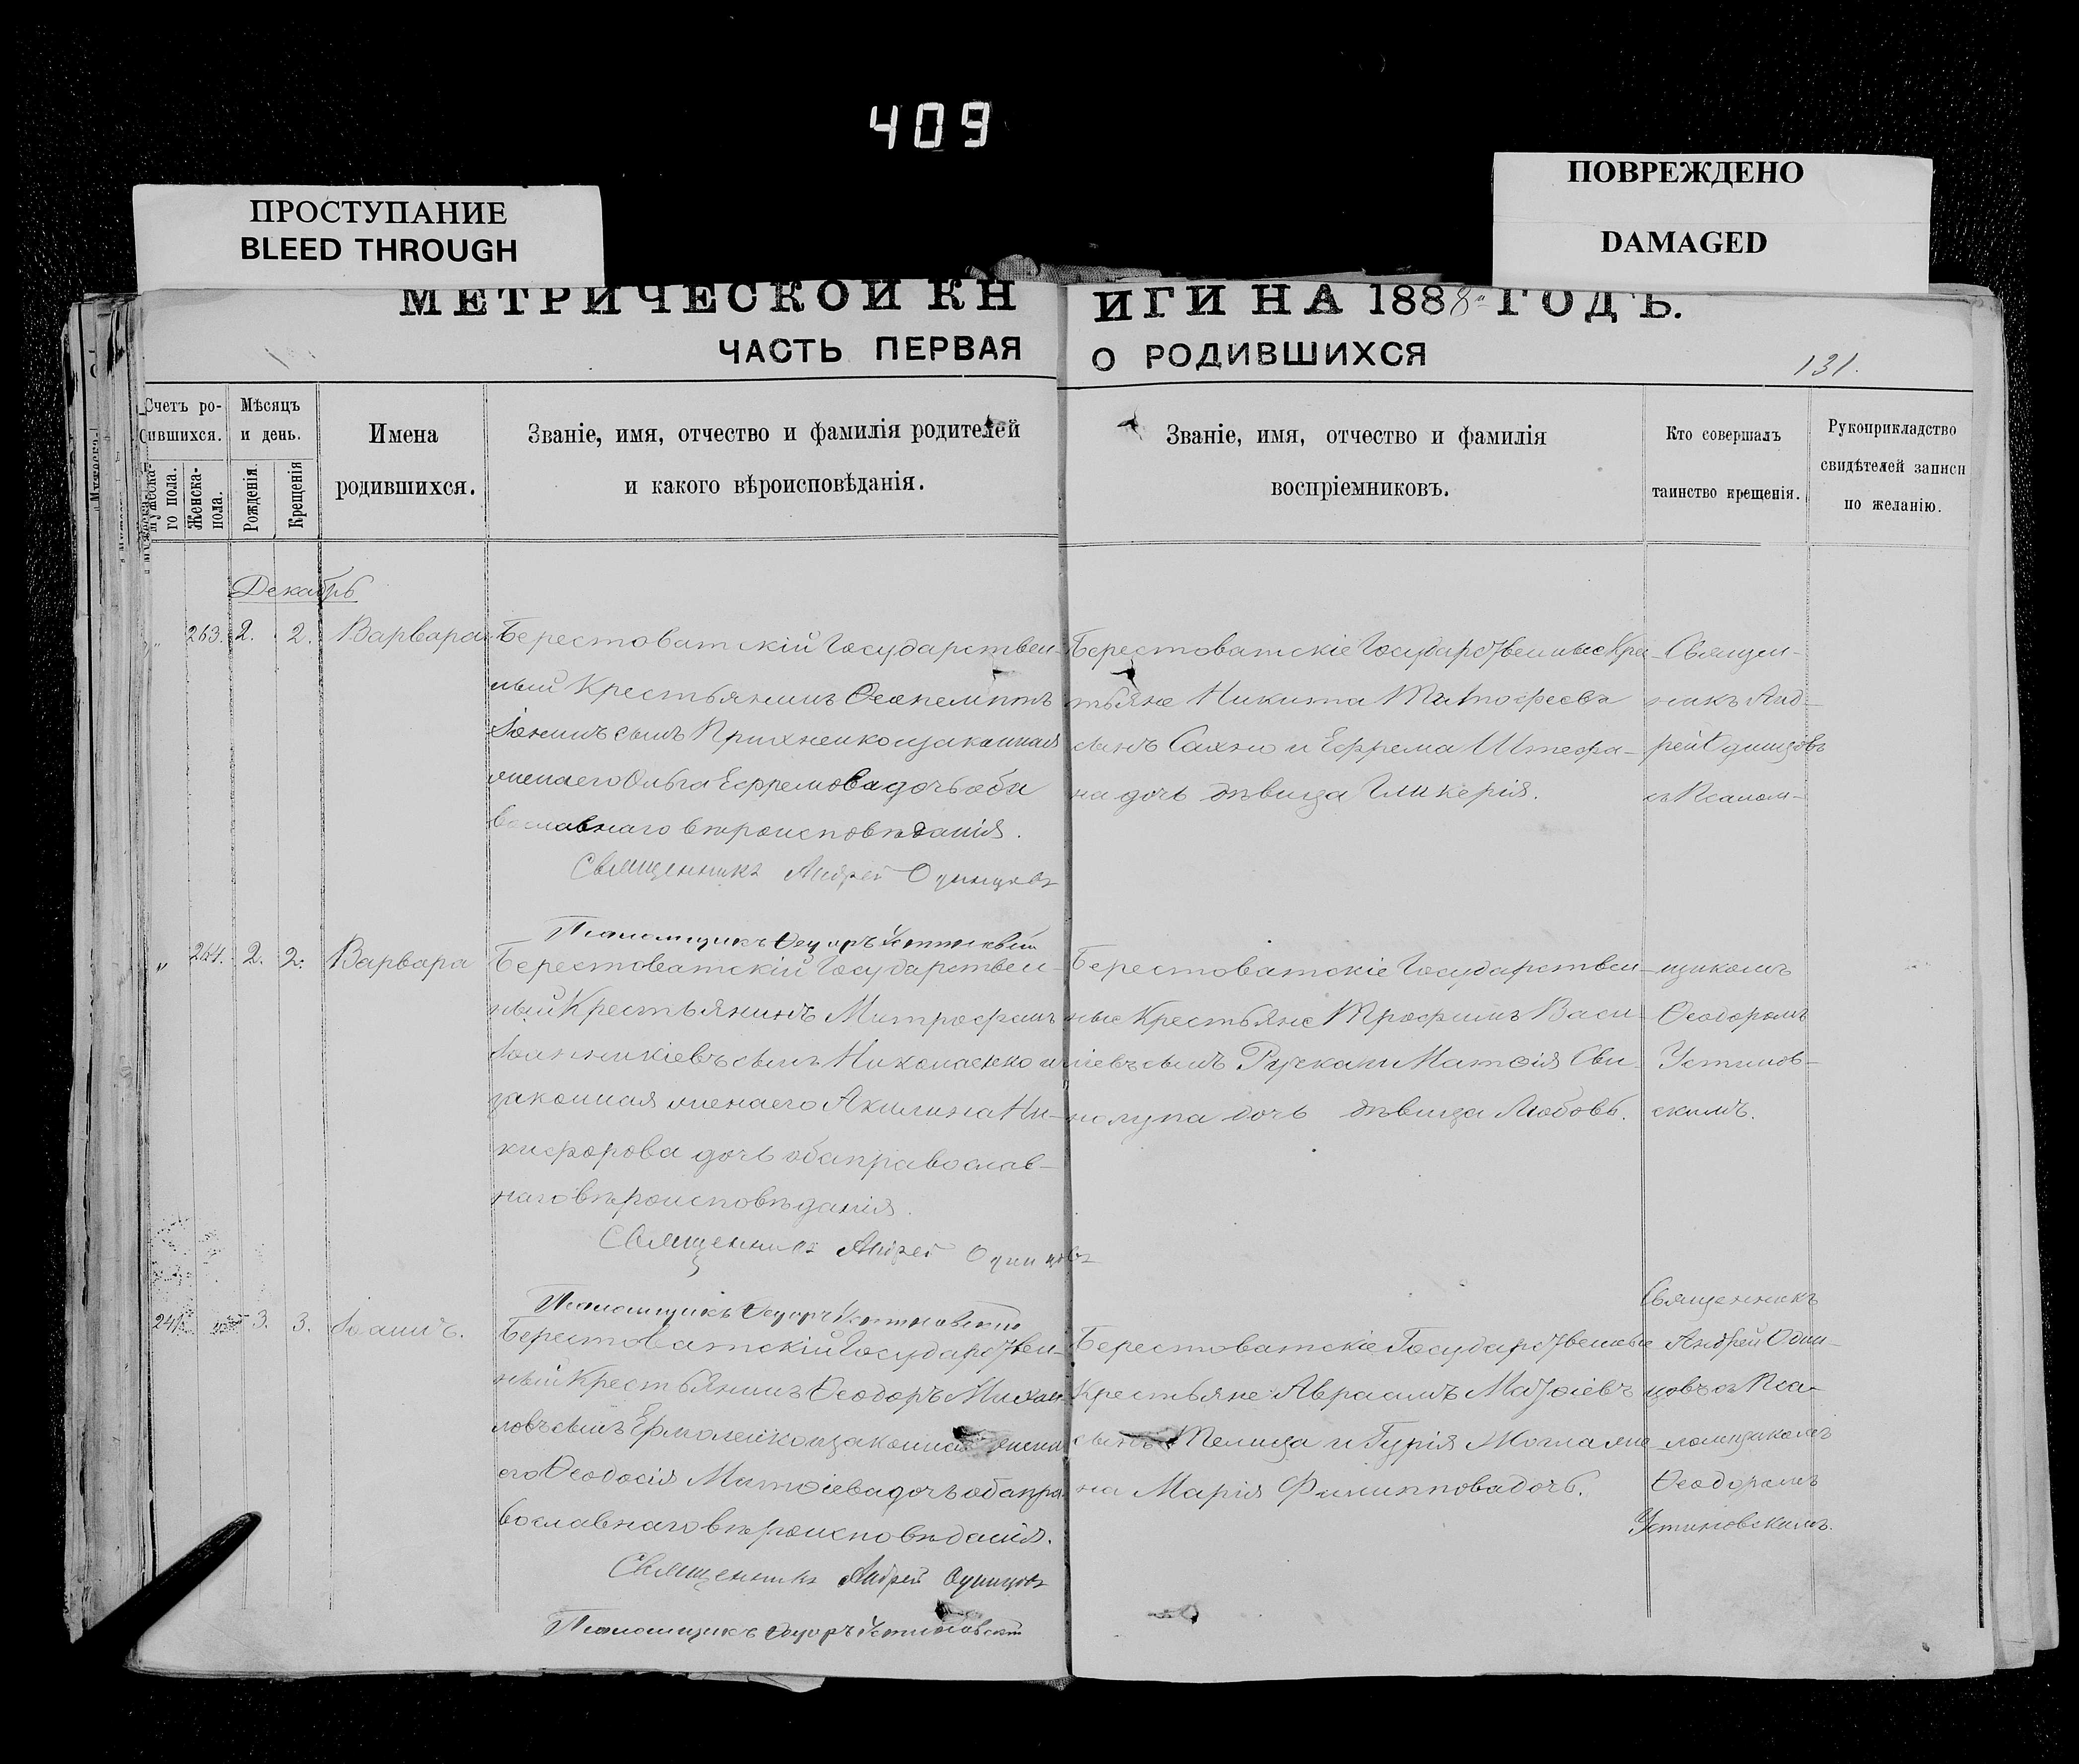 409
ПРОСТУПАНИЕ
BLEED THROUGH
ПОВРЕЖДЕНО
DAMAGED
МЕТРИЧЕСКОЙ КНИГИ НА 1888 ГОДЪ.
ЧАСТЬ ПЕРВАЯ О РОДИВШИХСЯ
131.
Счетъ ро-
дившихся.
Мужеска-
го пола.
Женска-
пола.
Мѣсяцъ
и день.
Рожденія.
Крещенія
Имена
родившихся.
Званіе, имя, отчество и фамилія родителей
и какого вѣроисповѣданія.
Званіе, имя, отчество и фамилія
воспріемниковъ.
Кто совершалъ
таинство крещенія.
Рукоприкладство
свидѣтелей записи
по желанію.
Декабрь
263. 2. 2. Варвара
Берестоватскій Государствен-
ный Крестьянинъ
сынъ законная
жена его Ольга Ефремова дочь оба
вославнаго вѣроисповѣданія.
Священникъ Андрей Одинцовъ
Псаломщикъ Ѳеодоръ Устиновскій
Берестоватскіе Государственные Крес-
тьяне Никита Тимоѳеевъ
сынъ Сахно и Ефрема Штефа-
на дочь дѣвица Гликерія.
Священ-
никъ Анд-
рей Одинцовъ
съ Псалом-
" 264. 2. 2. Варвара
Берестоватскій Государствен-
ный Крестьянинъ Митрофанъ
Іоанникіевъ сынъ Николаенко и
законная жена его Акилина Ни-
кифорова дочь оба православ-
наго вѣроисповѣданія.
Священникъ Андрей Одинцовъ
Псаломщикъ Ѳеодоръ Устиновскій
Берестоватскіе Государствен-
ные Крестьяне Трофимъ Васи-
ліевъ сынъ и Матѳія Сви-
дочь дѣвица Любовь.
щикомъ
Ѳеодоромъ
Устинов-
скимъ.
3. 3. Іоаннъ.
Берестоватскій Государствен-
ный Крестьянинъ Ѳеодоръ Михаи-
ловъ сынъ Ермоленко и законная жена
его Ѳеодосія Матѳіева дочь оба пра-
вославнаго вѣроисповѣданія.
Священникъ Андрей Одинцовъ
Псаломщикъ Ѳеодоръ Устиновскій
Берестоватскіе Государственные
Крестьяне Авраамъ Матѳіевъ
сынъ Телица и Гурія жена
Марія Филиппова дочь.
Священникъ
Андрей Один-
цовъ съ Пса-
ломщикомъ
Ѳеодоромъ
Устиновскимъ.